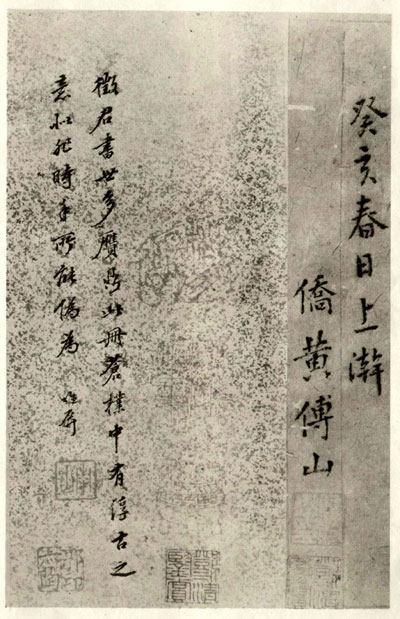 癸亥春日上澣
僑黃傅山
徵君書世多贋鼎此冊蒼樸中有淳古之
意非時手所能偽為